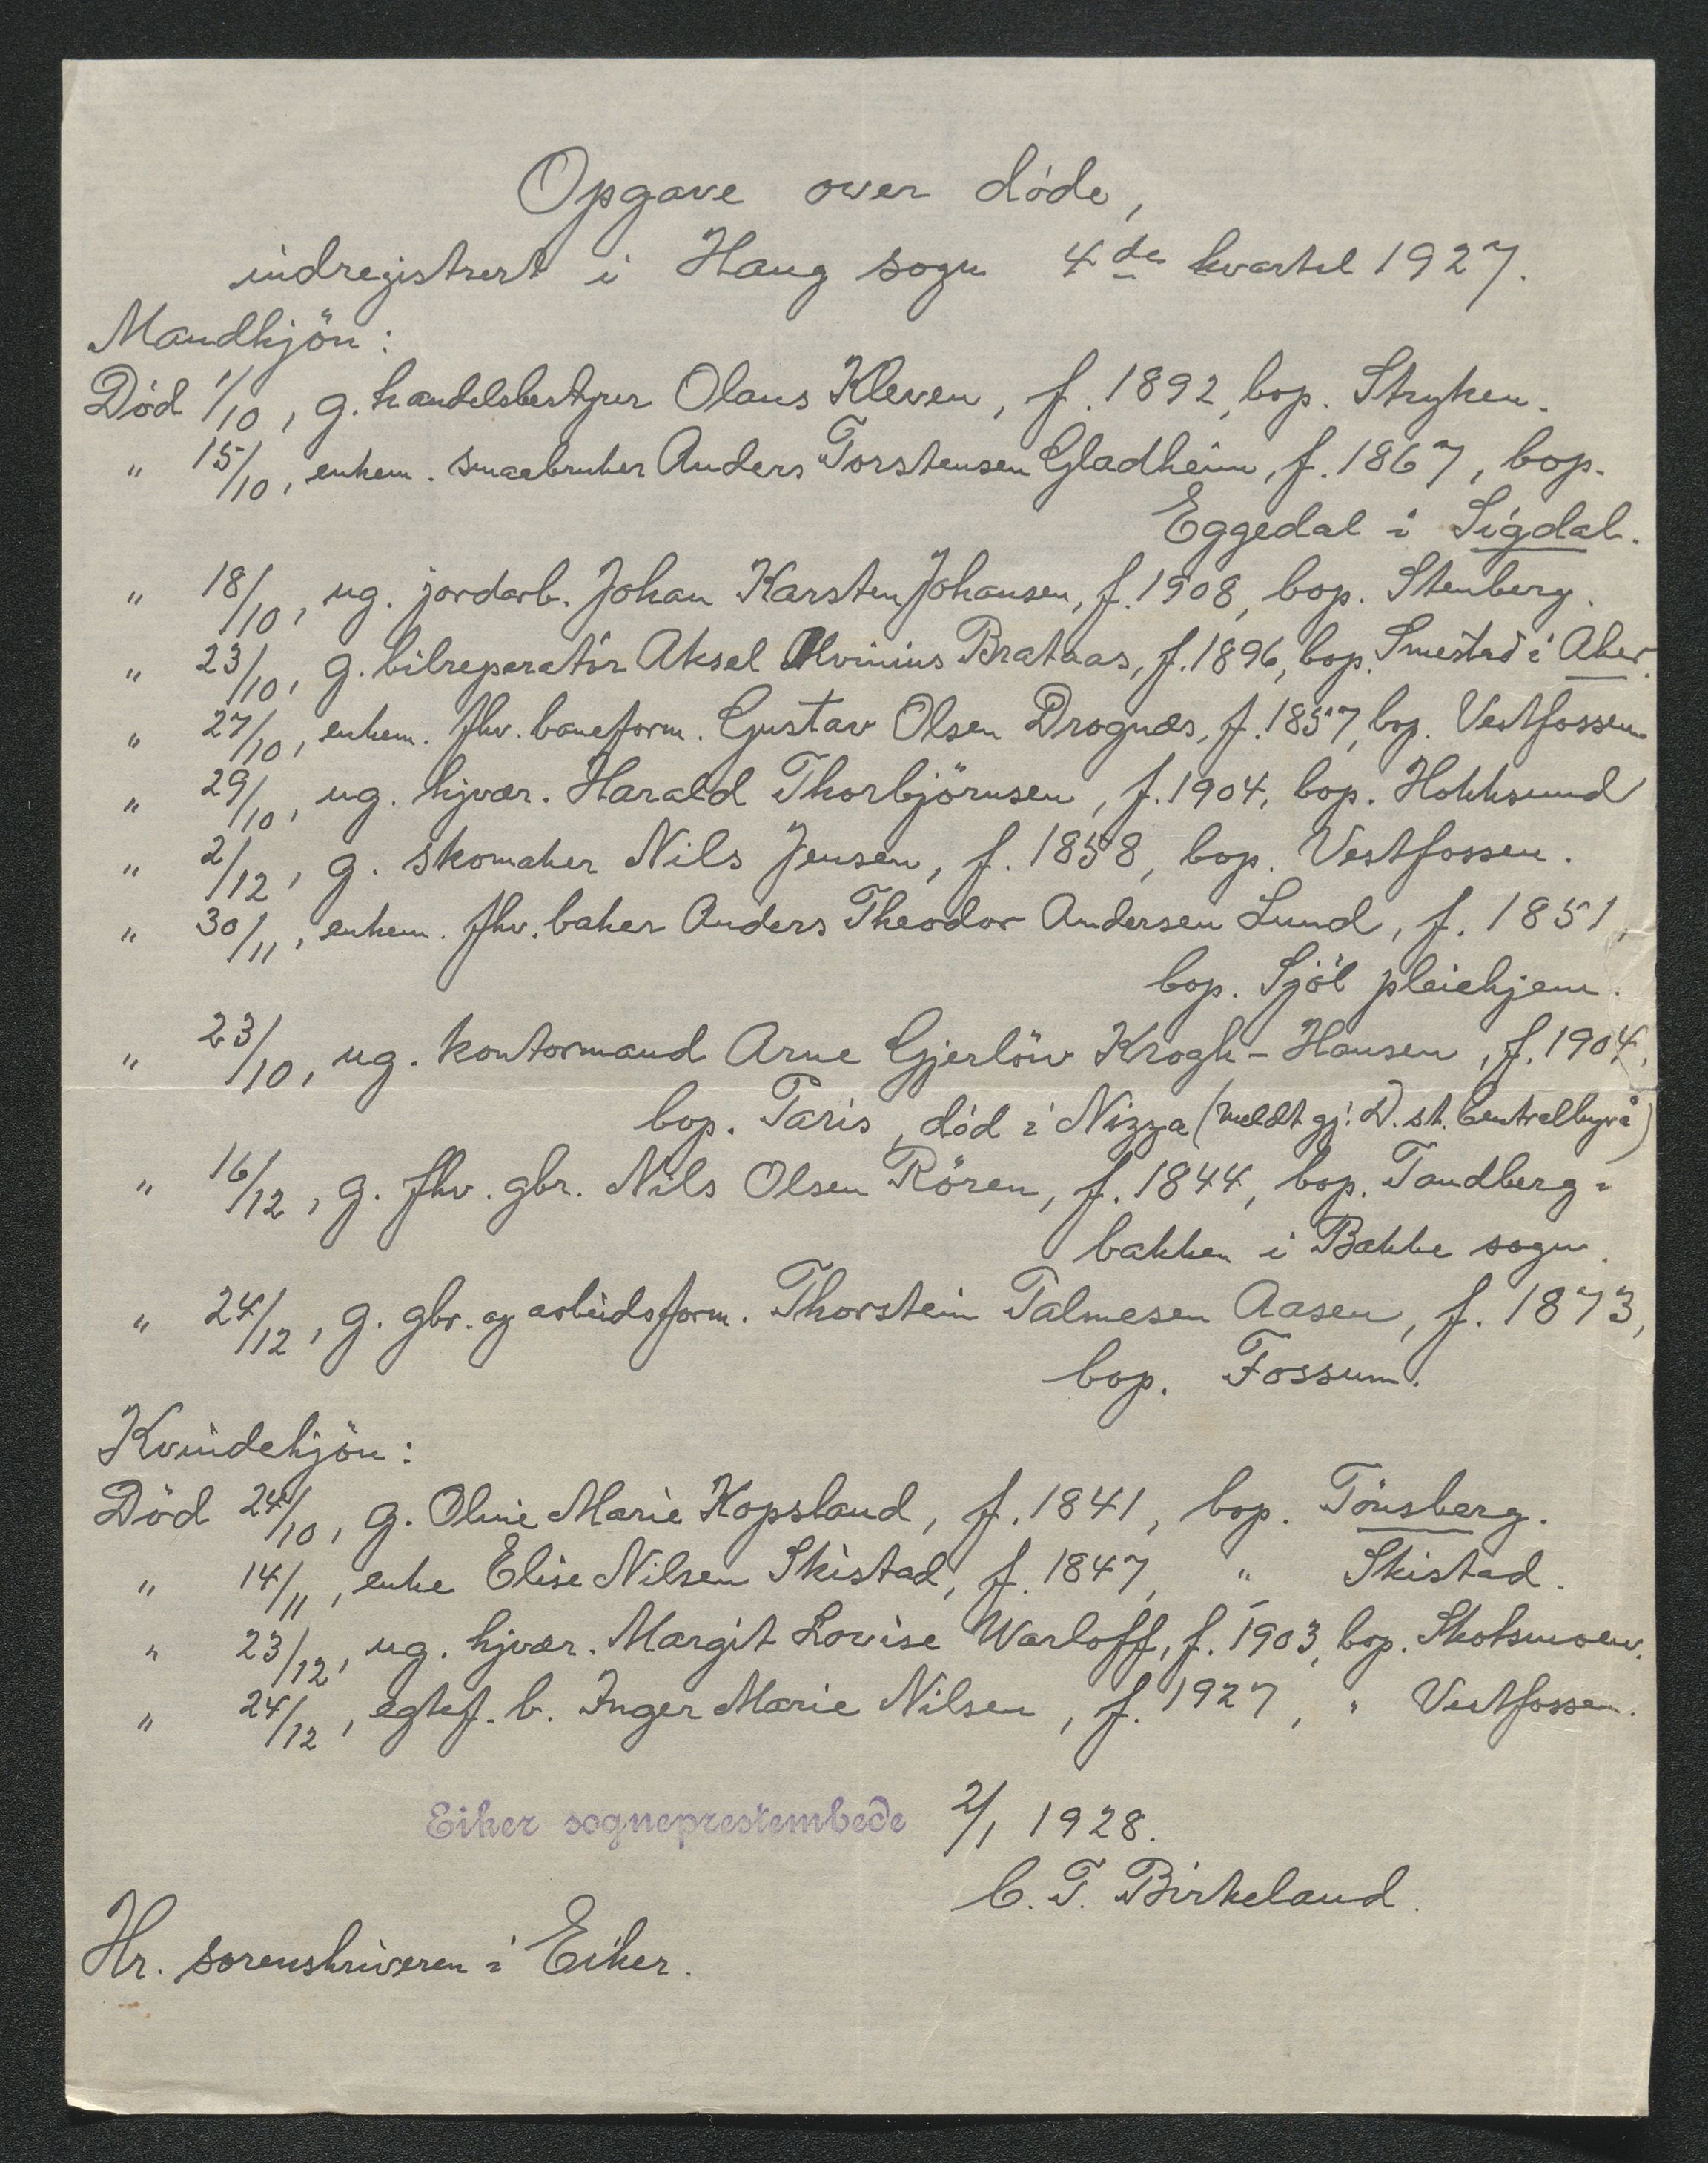 Opgave over døde,
indregistrert i Haug sogn 4de kvartal 1927.
Mandkjön:
Død 1/10, g. handelsbestyrer Olaus Kleven, f. 1892, bop. Stryken.
" 15/10, enkem. smaabruker Anders Torstensen Gladheim, f. 1867, bop.
Eggedal i Sigdal.
" 18/10, ug. jordarb. Johan Karsten Johansen, f. 1908, bop. Stenberg.
" 23/10, g. bilreparatör Aksel Alvinius Brataas, f. 1896, bop. Smestad i Aker.
" 27/10, enkem. fhv. baneform. Gustav Olsen Drognæs, f. 1857, bop. Vestfossen
" 29/10, ug. hjvær. Harald Thorbjörnsen, f. 1904, bop. Hokksund
" 2/12, g. skomaker Nils Jensen, f. 1858, bop. Vestfossen.
" 30/11, enkem. fhv. baker Anders Theodor Andersen Lund, f. 1851,
bop. Sjöl pleiehjem.
" 23/10, ug. kontormand Arne Gjerlöw Krogh-Hansen, f. 1904,
bop. Paris, død i Nizza (meldt gj. D. st. Centralbyrå)
" 16/12, g. fhv. gbr. Nils Olsen Rören, f. 1844, bop. Tandberg-
bakken i Bakke sogn.
" 24/12, g. gbr. og arbeidsform. Thorstein Palmesen Aasen, f. 1873,
bop. Fossum.
Kvindekjön:
Död 24/10, g. Oline Marie Kopsland, f. 1841, bop. Tönsberg.
" 14/11, enke Elise Nilsen Skistad, f. 1847, " Skistad.
" 23/12, ug. hjvær. Margit Lovise Warloff, f. 1903, bop. Skotsmoen.
" 24/12, egtef. b. Inger Marie Nilsen, f. 1927, " Vestfossen.
Eiker sogneprestembede 2/1 1928.
C. T. Birkeland.
Hr. sorenskriveren i Eiker.